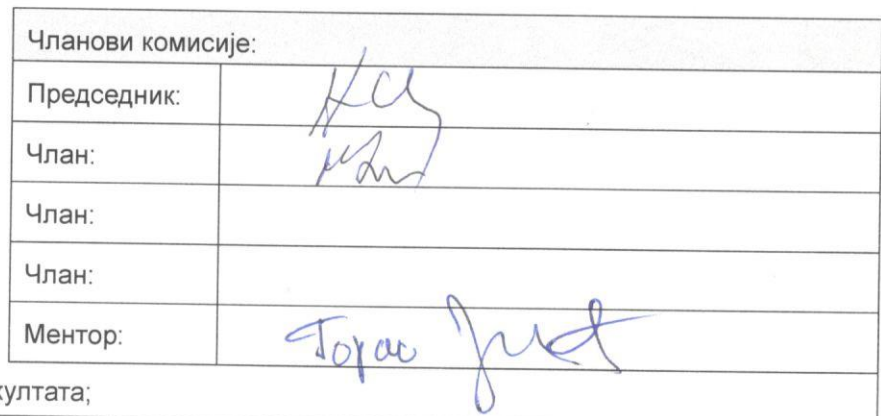 Чланови комисије:
Председник:
Члан:
Члан:
Члан:
Ментор:
култата;